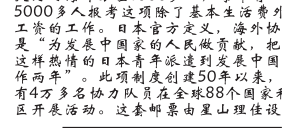 5000多人报考这项除了基本生活费外
工资的工作。日本官方定义,海外协
是“为发展中国家的人民做贡献,把
这样热情的日本青年派遣到发展中国
作两年”。此项制度创建50年以来,
有4万多名协力队员在全球88个国家和
区开展活动。这套邮票由星山理佳设